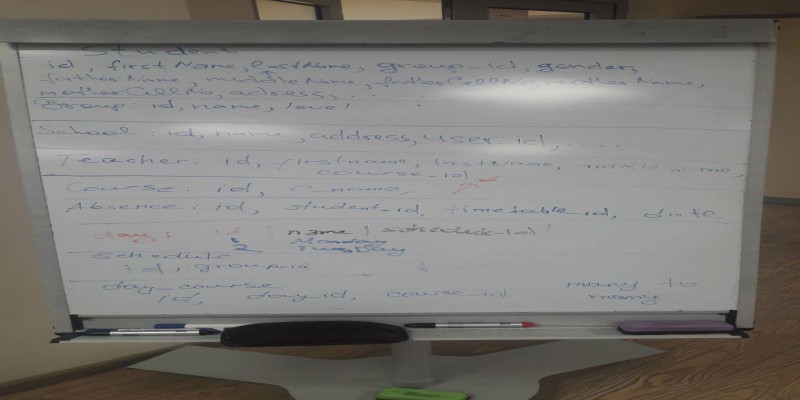 Student
id, firstName, lastName, group_id, gender,
fatherName, middleName, fatherCellNo, motherName,
motherCellNo, adress, . . .
Group: id, name, level
School: id, name, address, user_id, ...
Teacher: id, firstname, lastName,
course_id
Course: id, c_name,
Absence: id, student_id, timetable_id, date
day: id | name | schedule_id |
1 Monday
2 Tuesday
Schedule
id, group_id
day_course many to
id, day_id, course_id many